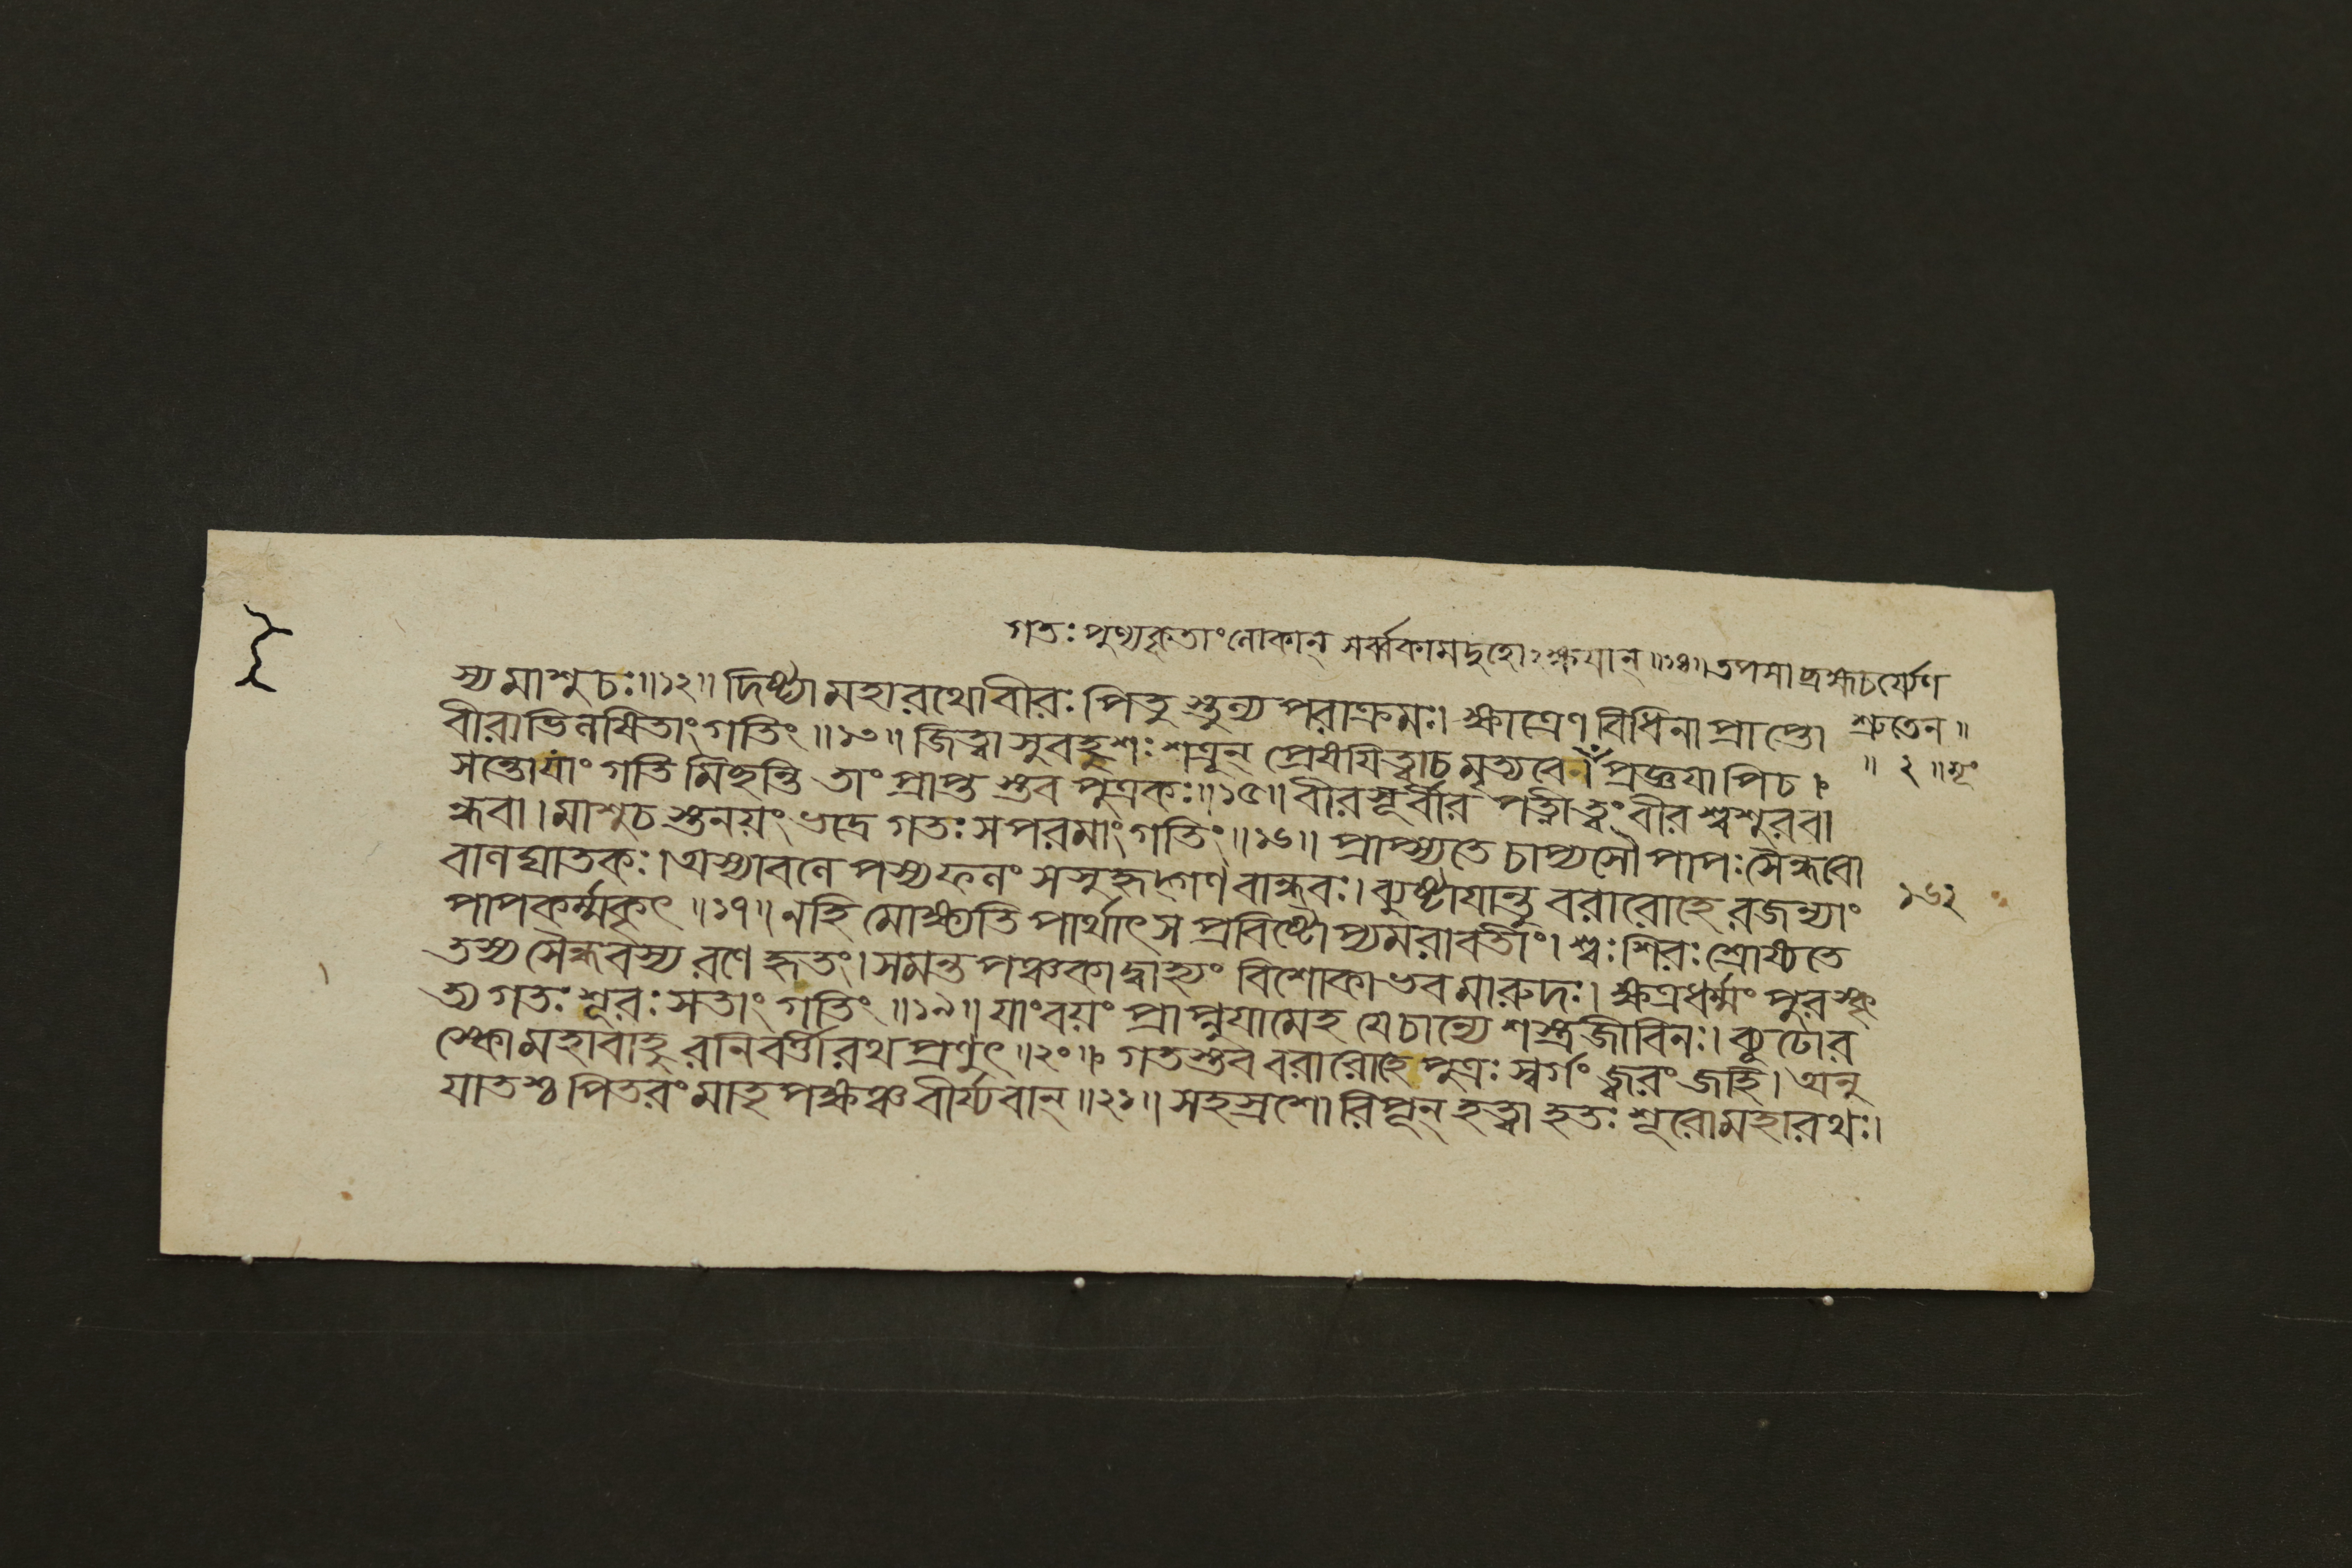 গতঃ পুণ্যকৃতাং লোকান্ সর্ব্বকামদুহোঽক্ষয়ান্॥১৪॥ তপসা ব্রহ্মচর্য্যেণ
শ্রুতেন॥
স্য মাশুচঃ॥১২॥ দিষ্ট্যা মহারথো বীরঃ পিতু স্তুল্য পরাক্রমঃ। ক্ষাত্রেণ বিধিনা প্রাপ্তো
বীরাভিলষিতাং গতিং॥১৩॥ জিত্বা সুবহুশঃ শত্রূন্ প্রেষয়িত্বা চ মৃত্যবে। প্রজ্ঞয়াপিচ।
॥ ২ ॥
সন্তো যাং গতি মিছন্তি তাং প্রাপ্ত স্তব পুত্রকঃ॥১৫॥ বীরসূর্বীর পত্নী ত্বং বীর শ্বশুরবা
ন্ধবা। মাশুচ স্তনয়ং ভদ্রে গতঃ স পরমাং গতিং॥১৬॥ প্রাপ্স্যতে চাপ্যসৌ পাপঃ সৈন্ধবো
বালঘাতকঃ। অস্যাবলেপস্য ফলং সসুহৃদ্গণ বান্ধবঃ। ব্যুষ্টায়ান্তু বরারোহে রজন্যাং
১৬২
পাপকর্ম্মকৃৎ॥১৭॥ নহি মোক্ষ্যতি পার্থাৎ স প্রবিষ্টোপ্যমরাবতীং। শ্বঃ শিরঃ শ্রোষ্যতে
তস্য সৈন্ধবস্য রণে হৃতং। সমন্ত পঞ্চকাদ্বাহ্যং বিশোকা ভব মারুদঃ। ক্ষত্রধর্ম্মং পুরস্কৃ
ত্য গতঃ শূরঃ সতাং গতিং॥১৯॥ যাং বয়ং প্রাপ্নুয়ামেহ যে চান্যে শস্ত্রজীবিনঃ। ব্যূঢোর
স্কো মহাবাহু রনিবর্ত্তী রথ প্রণুৎ॥২০॥ গতস্তব বরারোহে পুত্রঃ স্বর্গং জ্বরং জহি। অনু
যাতশ্চ পিতরং মাতৃপক্ষঞ্চ বীর্য্যবান্॥২১॥ সহস্রশো রিপূন্ হত্বা হতঃ শূরো মহারথঃ।